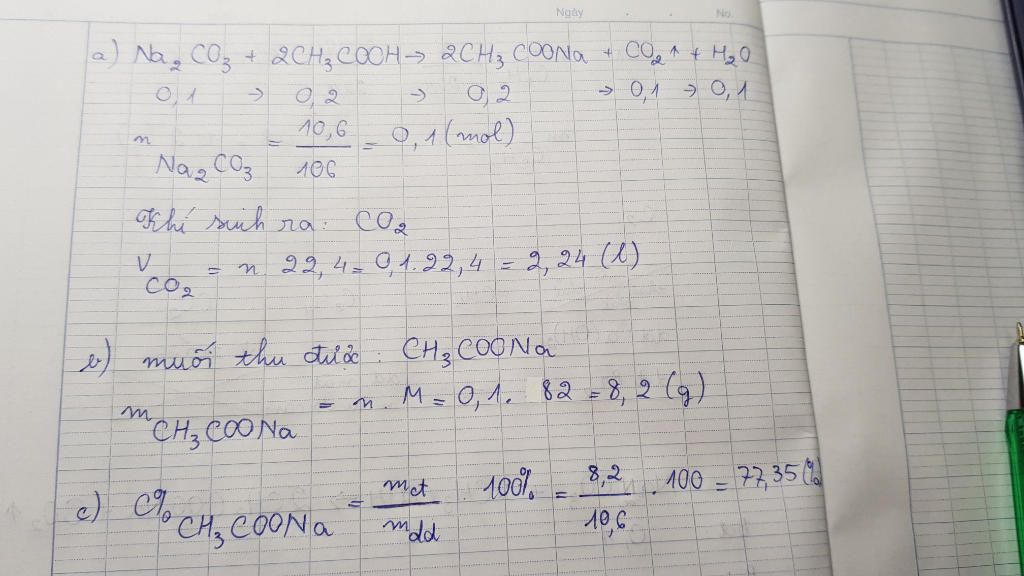 Ngày . . No.
a) Na₂CO₃ + 2CH₃COOH → 2CH₃COONa + CO₂↑ + H₂O
0,1 → 0,2 → 0,2 → 0,1 → 0,1
n Na₂CO₃ = 10,6/106 = 0,1 (mol)
Khí sinh ra: CO₂
V CO₂ = n 22,4 = 0,1.22,4 = 2,24 (l)
b) muối thu được: CH₃COONa
m CH₃COONa = n . M = 0,1. 82 = 8,2 (g)
c) C% CH₃COONa = mct/mdd . 100% = 8,2/10,6 . 100 = 77,35 (%)